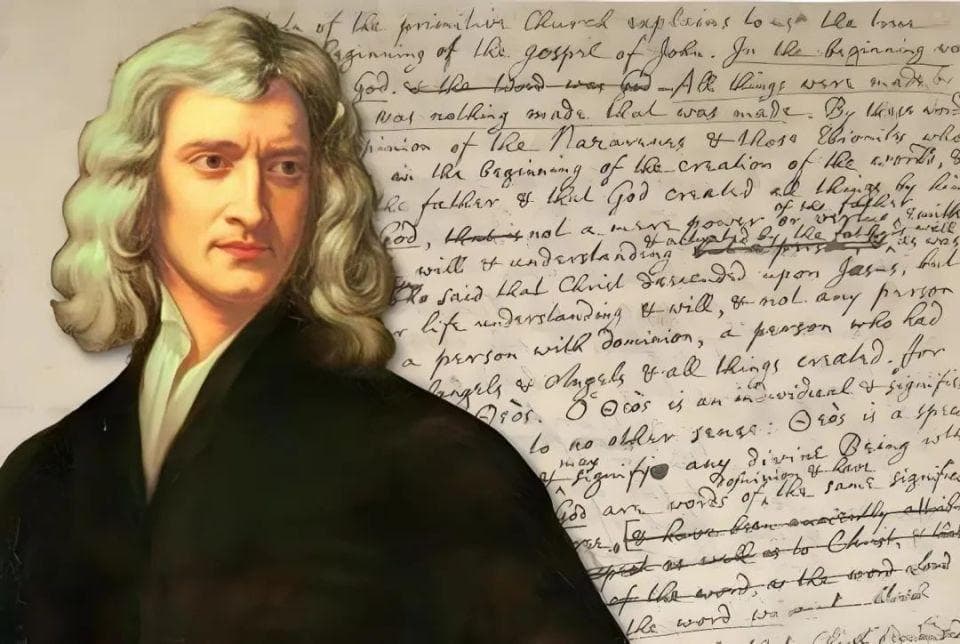 of the primitive Church explains to us the true
beginning of the gospel of John. In the beginning wa
God. & the Word was God All things were made by
was nothing made that was made. By these word
opinion of the Nazarenes & those Ebionites who
in the beginning of the creation of the world, &
the father & that God created all things by him
of the father
God, that is not a mere power or vertue & with
will & understanding & by the father as was
who said that Christ descended upon Jesus, but
r life understanding & will, & not any person
a person with dominion, a person who had
Angels & Angels & all things created. For
Θεὸς. Ὁ Θεὸς is an individual & signifi
to no other sense: Θεὸς is a spe
may
& signify any divine Being wth
dominion & have
God are words of the same signifi
ver. [& have been anciently attrib
as well as to Christ, &
of the word, as the word
the word wa